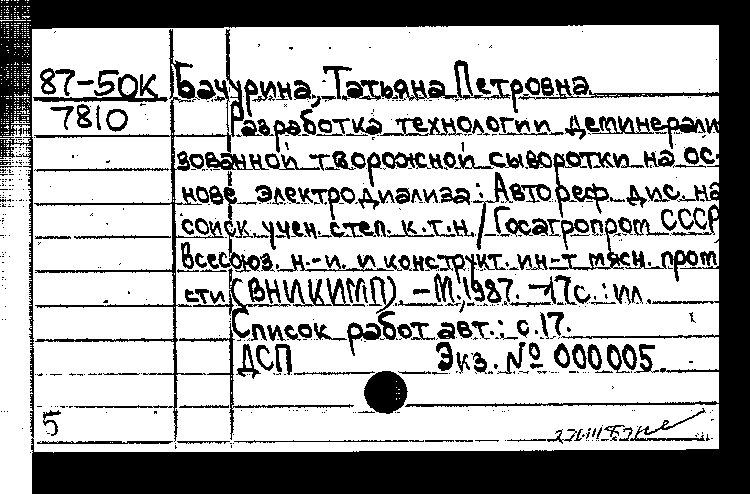 87-50К Бачурина, Татьяна Петровна
7810 Разработка технологии деминерали
зованной творожной сыворотки на ос-
нове электродиализа: Автореф. дис. на
соиск. учен. степ. к.т.н./Госагропром СССР
Всесоюз. н.-и. и конструкт. ин-т мясн. пром
сти (ВНИКИМП). - М., 1987. - 17с.: ил.
Список работ авт.: с.17.
ДСП Экз. № 000005.
5